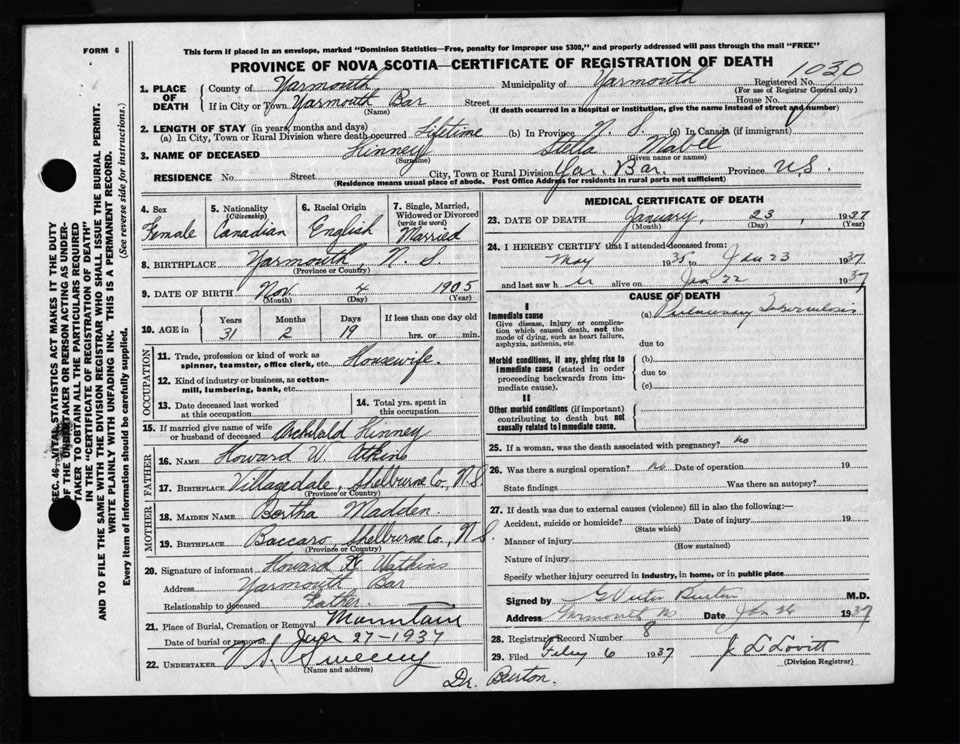 FORM 6
This form if placed in an envelope, marked "Dominion Statistics—Free, penalty for improper use $300," and properly addressed will pass through the mail "FREE"
PROVINCE OF NOVA SCOTIA—CERTIFICATE OF REGISTRATION OF DEATH
1. PLACE OF DEATH County of Yarmouth Municipality of Yarmouth Registered No. 1030
(For use of Registrar General only)
If in City or Town Yarmouth Bar Street House No.
(Name) (If death occurred in a hospital or institution, give the name instead of street and number)
2. LENGTH OF STAY (in years, months and days)
(a) In City, Town or Rural Division where death occurred Lifetime (b) In Province N. S. (c) In Canada (if immigrant)
3. NAME OF DECEASED Kinney Stella Mabel
(Surname) (Given name or names)
RESIDENCE No. Street City, Town or Rural Division Yar. Bar. Province NS.
(Residence means usual place of abode. Post Office Address for residents in rural parts not sufficient)
4. Sex Female
5. Nationality (Citizenship) Canadian
6. Racial Origin English
7. Single, Married, Widowed or Divorced (write the word) Married
8. BIRTHPLACE Yarmouth, N. S.
(Province or Country)
9. DATE OF BIRTH Nov 4 1905
(Month) (Day) (Year)
10. AGE in Years Months Days If less than one day old
31 2 19 hrs. or min.
OCCUPATION
11. Trade, profession or kind of work as spinner, teamster, office clerk, etc. Housewife.
12. Kind of industry or business, as cotton-mill, lumbering, bank, etc.
13. Date deceased last worked at this occupation
14. Total yrs. spent in this occupation
15. If married give name of wife or husband of deceased Archibald Kinney
FATHER
16. NAME Howard W. Atkins
17. BIRTHPLACE Villagedale, Shelburne Co., N.S.
(Province or Country)
MOTHER
18. MAIDEN NAME Bertha Madden.
19. BIRTHPLACE Baccaro, Shelburne Co., N.S.
(Province or Country)
20. Signature of informant Howard Watkins
Address Yarmouth Bar
Relationship to deceased Father.
21. Place of Burial, Cremation or Removal Mountain
Date of burial or removal 27-1937
22. UNDERTAKER Sweeny
(Name and address)
Dr. Burton.
MEDICAL CERTIFICATE OF DEATH
23. DATE OF DEATH January, 23, 1937
(Month) (Day) (Year)
24. I HEREBY CERTIFY that I attended deceased from:
May 1935 to Jan 23 1937
and last saw her alive on Jan 22 1937
CAUSE OF DEATH
I
Immediate cause (a) Pulmonary
Give disease, injury or complication which caused death, not the mode of dying, such as heart failure, asphyxia, asthenia, etc.
due to
Morbid conditions, if any, giving rise to immediate cause (stated in order proceeding backwards from immediate cause).
(b)
due to
(c)
II
Other morbid conditions (if important) contributing to death but not causally related to immediate cause.
25. If a woman, was the death associated with pregnancy? no
26. Was there a surgical operation? no Date of operation 19
State findings Was there an autopsy?
27. If death was due to external causes (violence) fill in also the following:—
Accident, suicide or homicide? Date of injury 19
(State which)
Manner of injury
(How sustained)
Nature of injury
Specify whether injury occurred in industry, in home, or in public place
Signed by G Victor Burton M.D.
Address Yarmouth NS Date Jan 26 1937
28. Registrar's Record Number 8
29. Filed Feby 6 1937 J L Lovitt
(Division Registrar)
SEC. 46—VITAL STATISTICS ACT MAKES IT THE DUTY
OF THE UNDERTAKER OR PERSON ACTING AS UNDER-
TAKER TO OBTAIN ALL THE PARTICULARS REQUIRED
IN THE "CERTIFICATE OF REGISTRATION OF DEATH"
AND TO FILE THE SAME WITH THE DIVISION REGISTRAR WHO SHALL ISSUE THE BURIAL PERMIT.
WRITE PLAINLY WITH UNFADING INK. THIS IS A PERMANENT RECORD.
Every item of information should be carefully supplied. (See reverse side for instructions.)